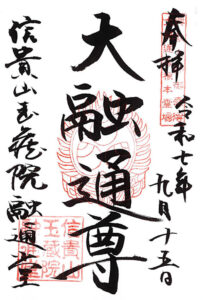 奉拝
令和七年九月十五日
大融通尊
信貴山玉蔵院融通堂
信貴山
玉蔵院
融通堂